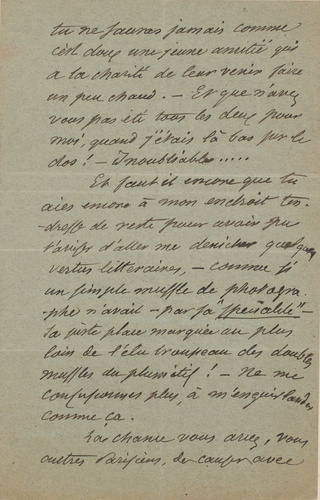 tu ne sauras jamais comme
c'est doux une jeune amitié qui
a la charité de leur venir faire
un peu chaud. — Et que n'avez
vous pas été tous les deux pour
moi, quand j'étais là bas sur le
dos! — Inoubliable.....
Et faut-il encore que tu
aies encore à mon endroit ten-
dresse de reste pour avoir pu
t'aviser d'aller me dénicher quelques
vertus littéraires, — comme si
un simple muffle de photogra-
phe n'avait — par sa "spécialité" —
la juste place marquée au plus
loin de l'élu troupeau des doubles
muffles du plumitif! — Ne me
plus, à m'enguirlander
comme ça.
La chance vous avez, vous
autres Parisiens, de causer avec